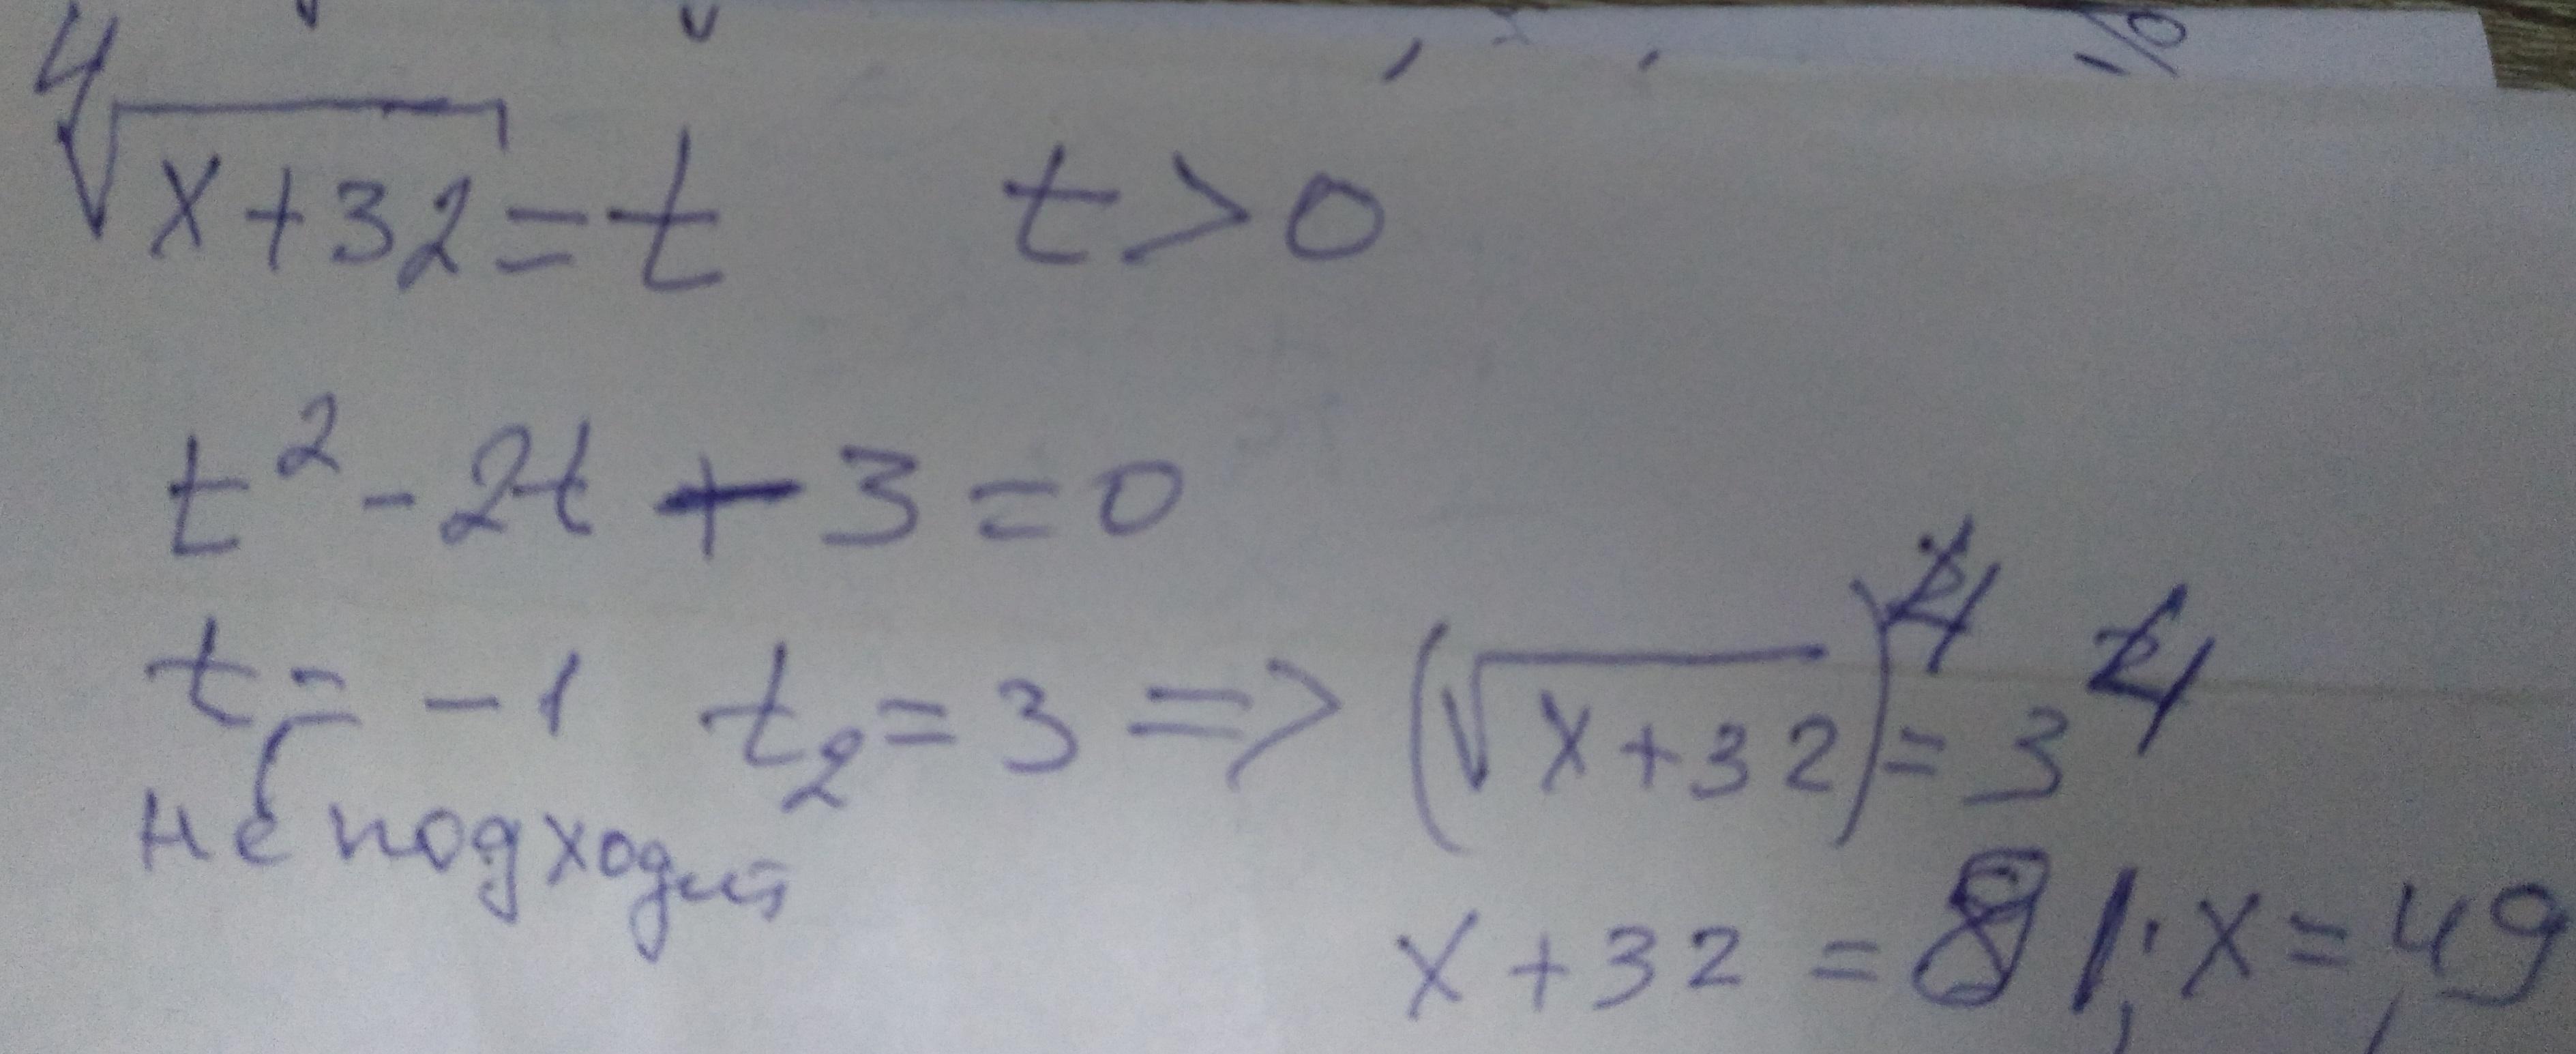 ⁴√(x+32) = t t > 0
t² - 2t - 3 = 0
t = -1 t₂ = 3 => (√(x+32))⁴ = 3⁴
не подходит
x + 32 = 81; x = 49